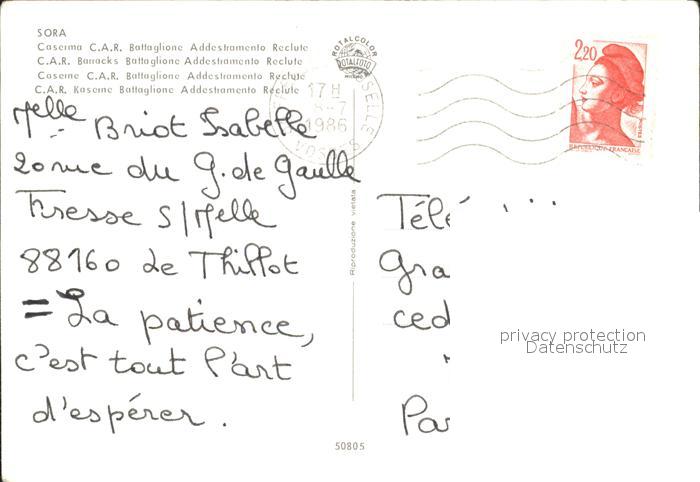 SORA
Caserma C.A.R. Battaglione Addestramento Reclute
C.A.R. Barracks Battaglione Addestramento Reclute
Caserne C.A.R. Battaglione Addestramento Reclute
C.A.R. Kaserne Battaglione Addestramento Reclute
ROTALCOLOR
ROTALFOTO
MILANO
17 H
8-7
1986
VOSGES
2,20
REPUBLIQUE FRANÇAISE
Melle Briot Isabelle
20 rue du G. de Gaulle
Fresse S/Melle
88160 Le Thillot
= La patience,
c'est tout l'art
d'espérer.
Riproduzione vietata
Télé
Gra
ced
Par
privacy protection
Datenschutz
50805